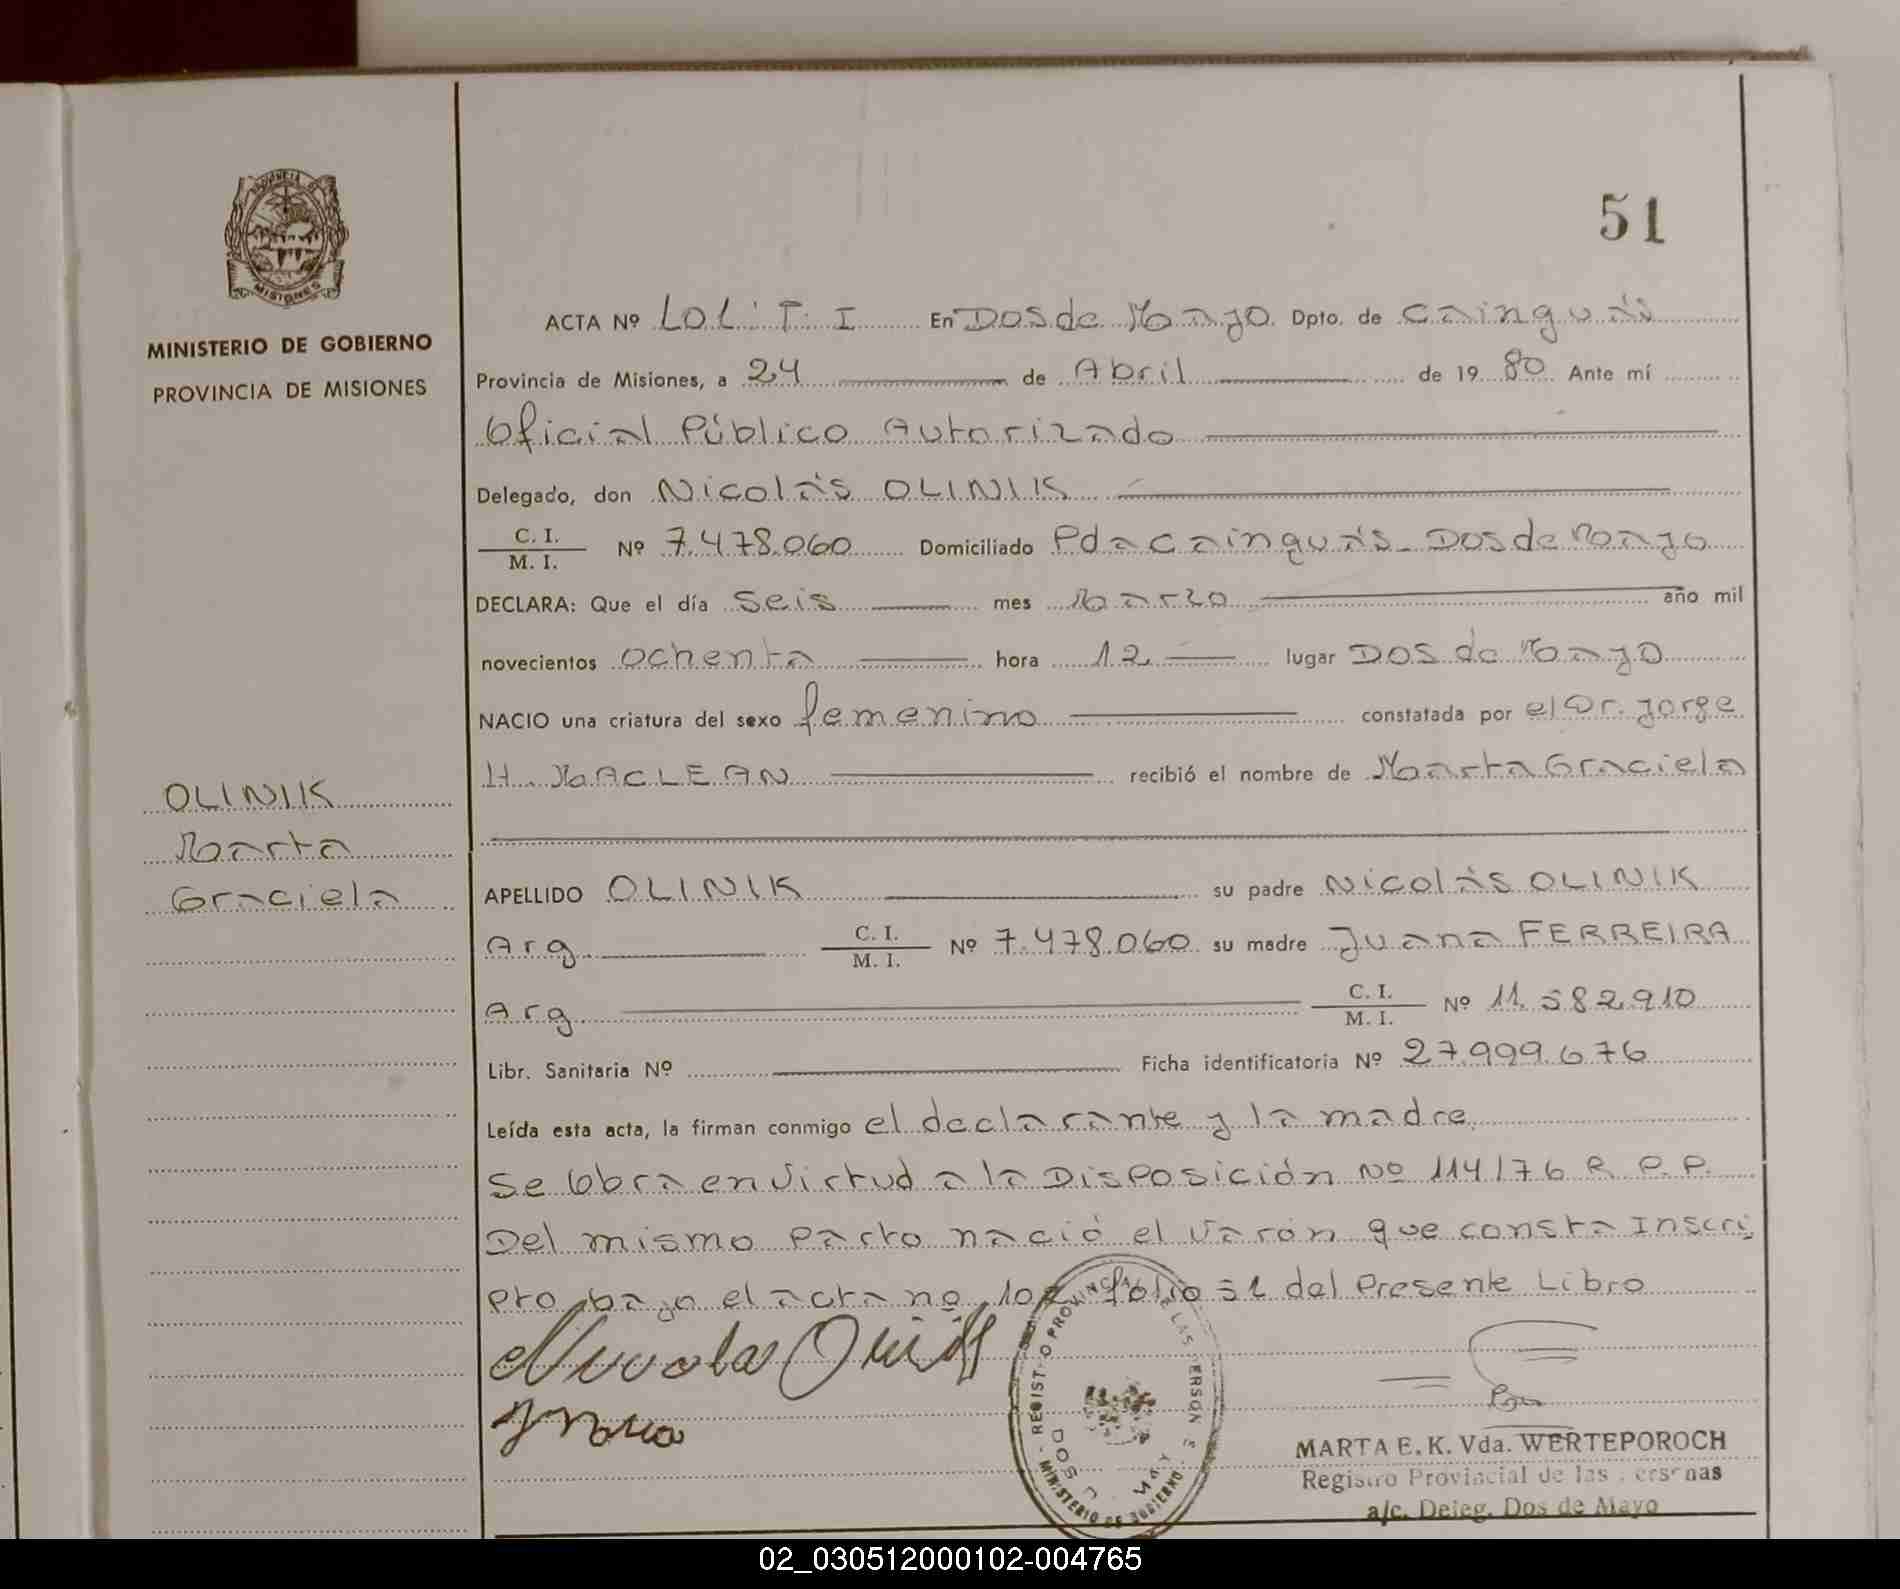 PROVINCIA DE
MISIONES
MINISTERIO DE GOBIERNO
PROVINCIA DE MISIONES
51
ACTA Nº 101: T: I En Dos de Mayo Dpto. de Cainguás
Provincia de Misiones, a 24 de Abril de 1980 Ante mí
Oficial Público Autorizado
Delegado, don Nicolás OLINIK
C. I.
M. I. Nº 7.478.060 Domiciliado Pda Cainguás - Dos de Mayo
DECLARA: Que el día seis mes Marzo año mil
novecientos ochenta hora 12 lugar Dos de Mayo
NACIO una criatura del sexo femenino constatada por el Dr. Jorge
H. MACLEAN recibió el nombre de Marta Graciela
OLINIK
Marta
Graciela
APELLIDO OLINIK su padre Nicolás OLINIK
Arg C. I.
M. I. Nº 7.478.060 su madre Juana FERREIRA
Arg C. I.
M. I. Nº 11.582.910
Libr. Sanitaria Nº Ficha identificatoria Nº 27.999.676
Leída esta acta, la firman conmigo el declarante y la madre.
Se Obra en Virtud a la Disposición Nº 114/76 R. P. P.
Del mismo Parto nació el Varón que consta Inscri
pto bajo el acta nº 102 folio 51 del Presente Libro
MARTA E. K. Vda. WERTEPOROCH
Registro Provincial de las Personas
a/c. Deleg. Dos de Mayo
02_030512000102-004765